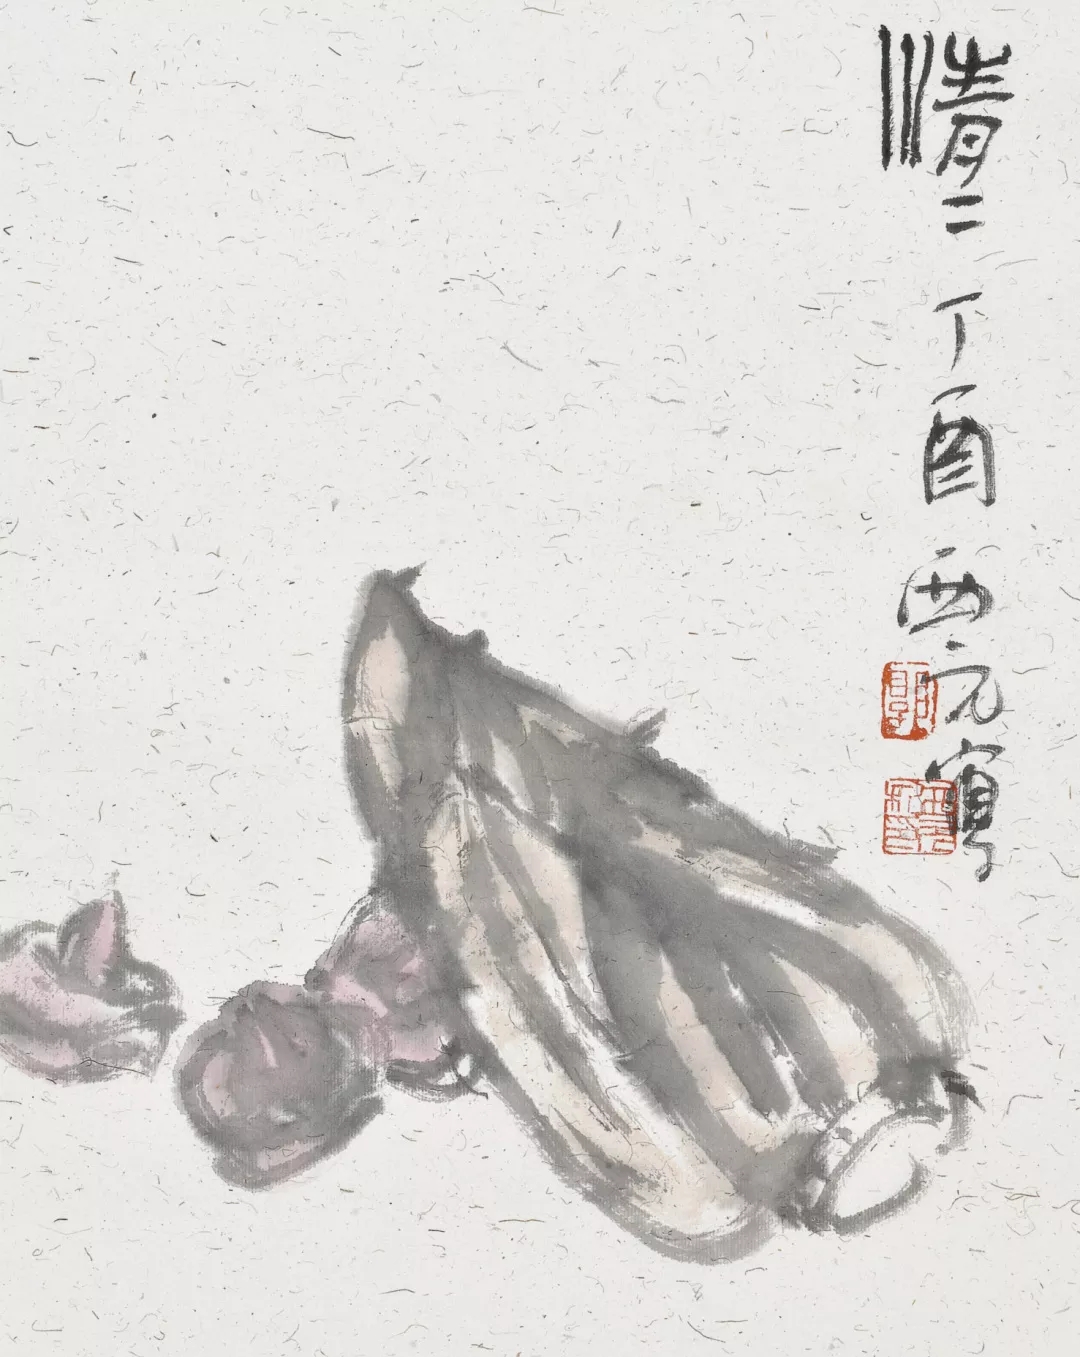 清二 丁酉 西元寫
郭